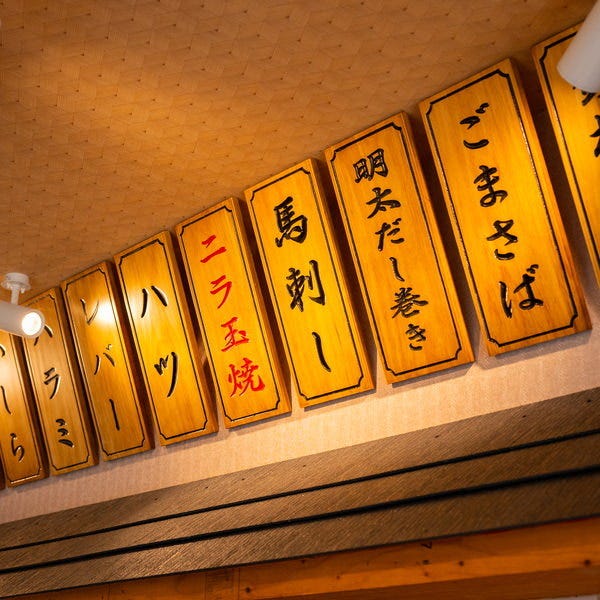 ごまさば
明太だし巻き
馬刺し
ニラ玉焼
ハツ
レバー
ハラミ